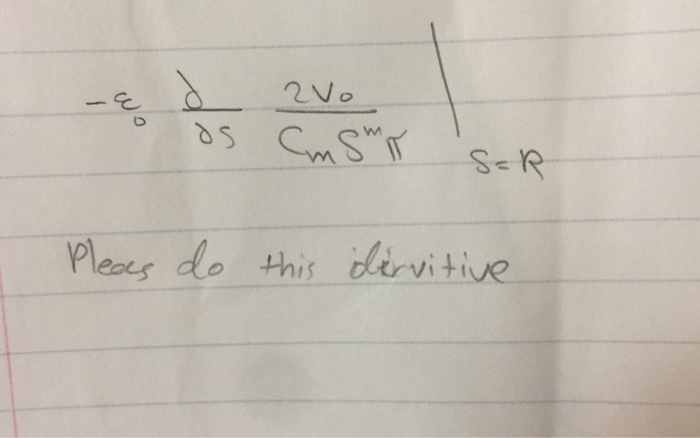 -ε₀ ∂/∂S 2V₀/(C_m S^m π) |_{S=R}
Pleacs do this dirvitive